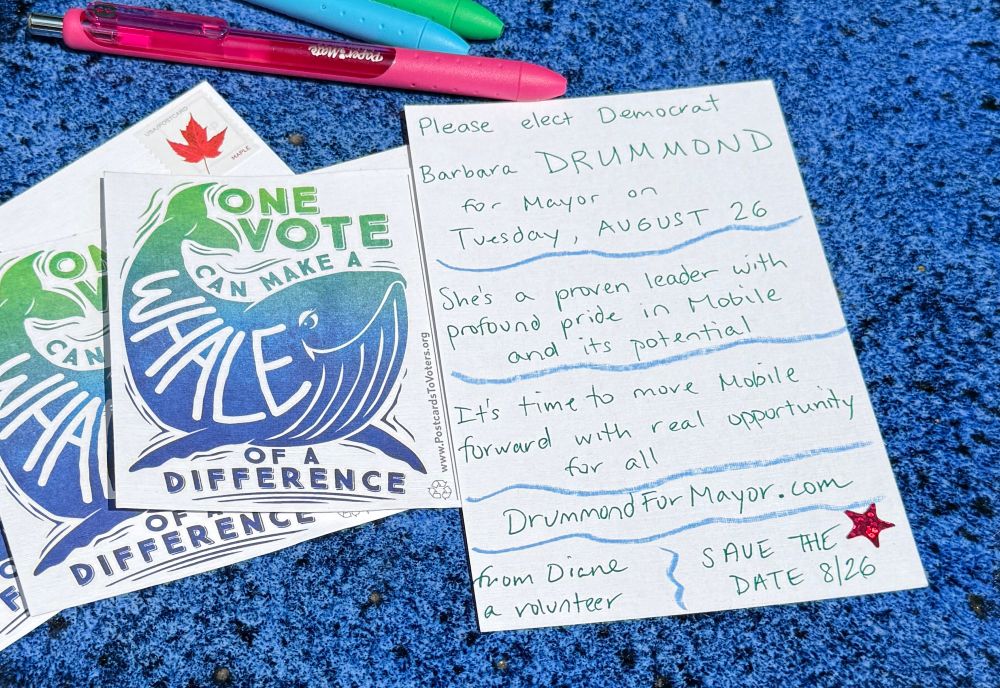 Paper Mate
USA/POSTCARD
MAPLE
ONE
VOTE
CAN MAKE A
WHALE
OF A
DIFFERENCE
www.PostcardsToVoters.org
ON
V
CAN
WHA
OF A
DIFFERENCE
Please elect Democrat
Barbara DRUMMOND
for Mayor on
Tuesday, AUGUST 26
She's a proven leader with
profound pride in Mobile
and its potential
It's time to move Mobile
forward with real opportunity
for all
DrummondForMayor.com
from Diane
a volunteer
SAVE THE
DATE 8/26